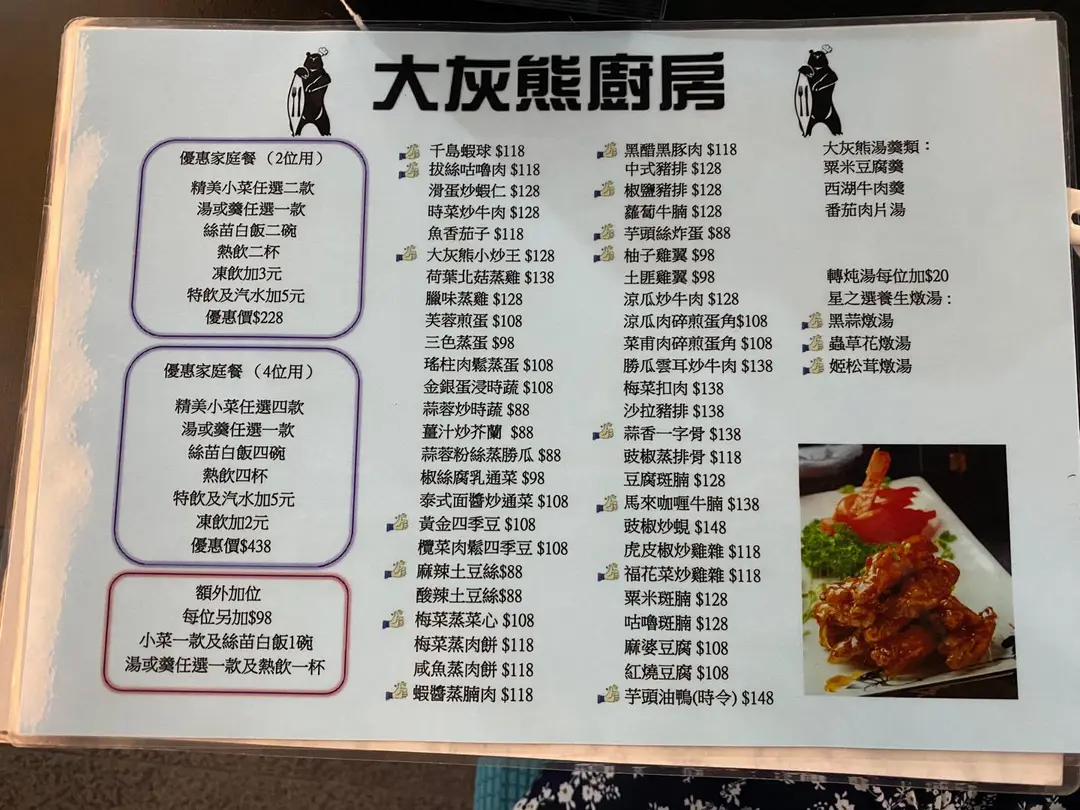 大灰熊廚房
優惠家庭餐（2位用）
精美小菜任選二款
湯或羹任選一款
絲苗白飯二碗
熱飲二杯
凍飲加3元
特飲及汽水加5元
優惠價$228
優惠家庭餐（4位用）
精美小菜任選四款
湯或羹任選一款
絲苗白飯四碗
熱飲四杯
特飲及汽水加5元
凍飲加2元
優惠價$438
額外加位
每位另加$98
小菜一款及絲苗白飯1碗
湯或羹任選一款及熱飲一杯
千島蝦球 $118
拔絲咕嚕肉 $118
滑蛋炒蝦仁 $128
時菜炒牛肉 $128
魚香茄子 $118
大灰熊小炒王 $128
荷葉北菇蒸雞 $138
臘味蒸雞 $128
芙蓉煎蛋 $108
三色蒸蛋 $98
瑤柱肉鬆蒸蛋 $108
金銀蛋浸時蔬 $108
蒜蓉炒時蔬 $88
薑汁炒芥蘭 $88
蒜蓉粉絲蒸勝瓜 $88
椒絲腐乳通菜 $98
泰式面醬炒通菜 $108
黃金四季豆 $108
欖菜肉鬆四季豆 $108
麻辣土豆絲$88
酸辣土豆絲$88
梅菜蒸菜心 $108
梅菜蒸肉餅 $118
咸魚蒸肉餅 $118
蝦醬蒸腩肉 $118
黑醋黑豚肉 $118
中式豬排 $128
椒鹽豬排 $128
蘿蔔牛腩 $128
芋頭絲炸蛋 $88
柚子雞翼 $98
土匪雞翼 $98
涼瓜炒牛肉 $128
涼瓜肉碎煎蛋角$108
菜甫肉碎煎蛋角 $108
勝瓜雲耳炒牛肉 $138
梅菜扣肉 $138
沙拉豬排 $138
蒜香一字骨 $138
豉椒蒸排骨 $118
豆腐斑腩 $128
馬來咖喱牛腩 $138
豉椒炒蜆 $148
虎皮椒炒雞雜 $118
福花菜炒雞雜 $118
粟米斑腩 $128
咕嚕斑腩 $128
麻婆豆腐 $108
紅燒豆腐 $108
芋頭油鴨(時令) $148
大灰熊湯羹類：
粟米豆腐羹
西湖牛肉羹
番茄肉片湯
轉炖湯每位加$20
星之選養生燉湯：
黑蒜燉湯
蟲草花燉湯
姬松茸燉湯